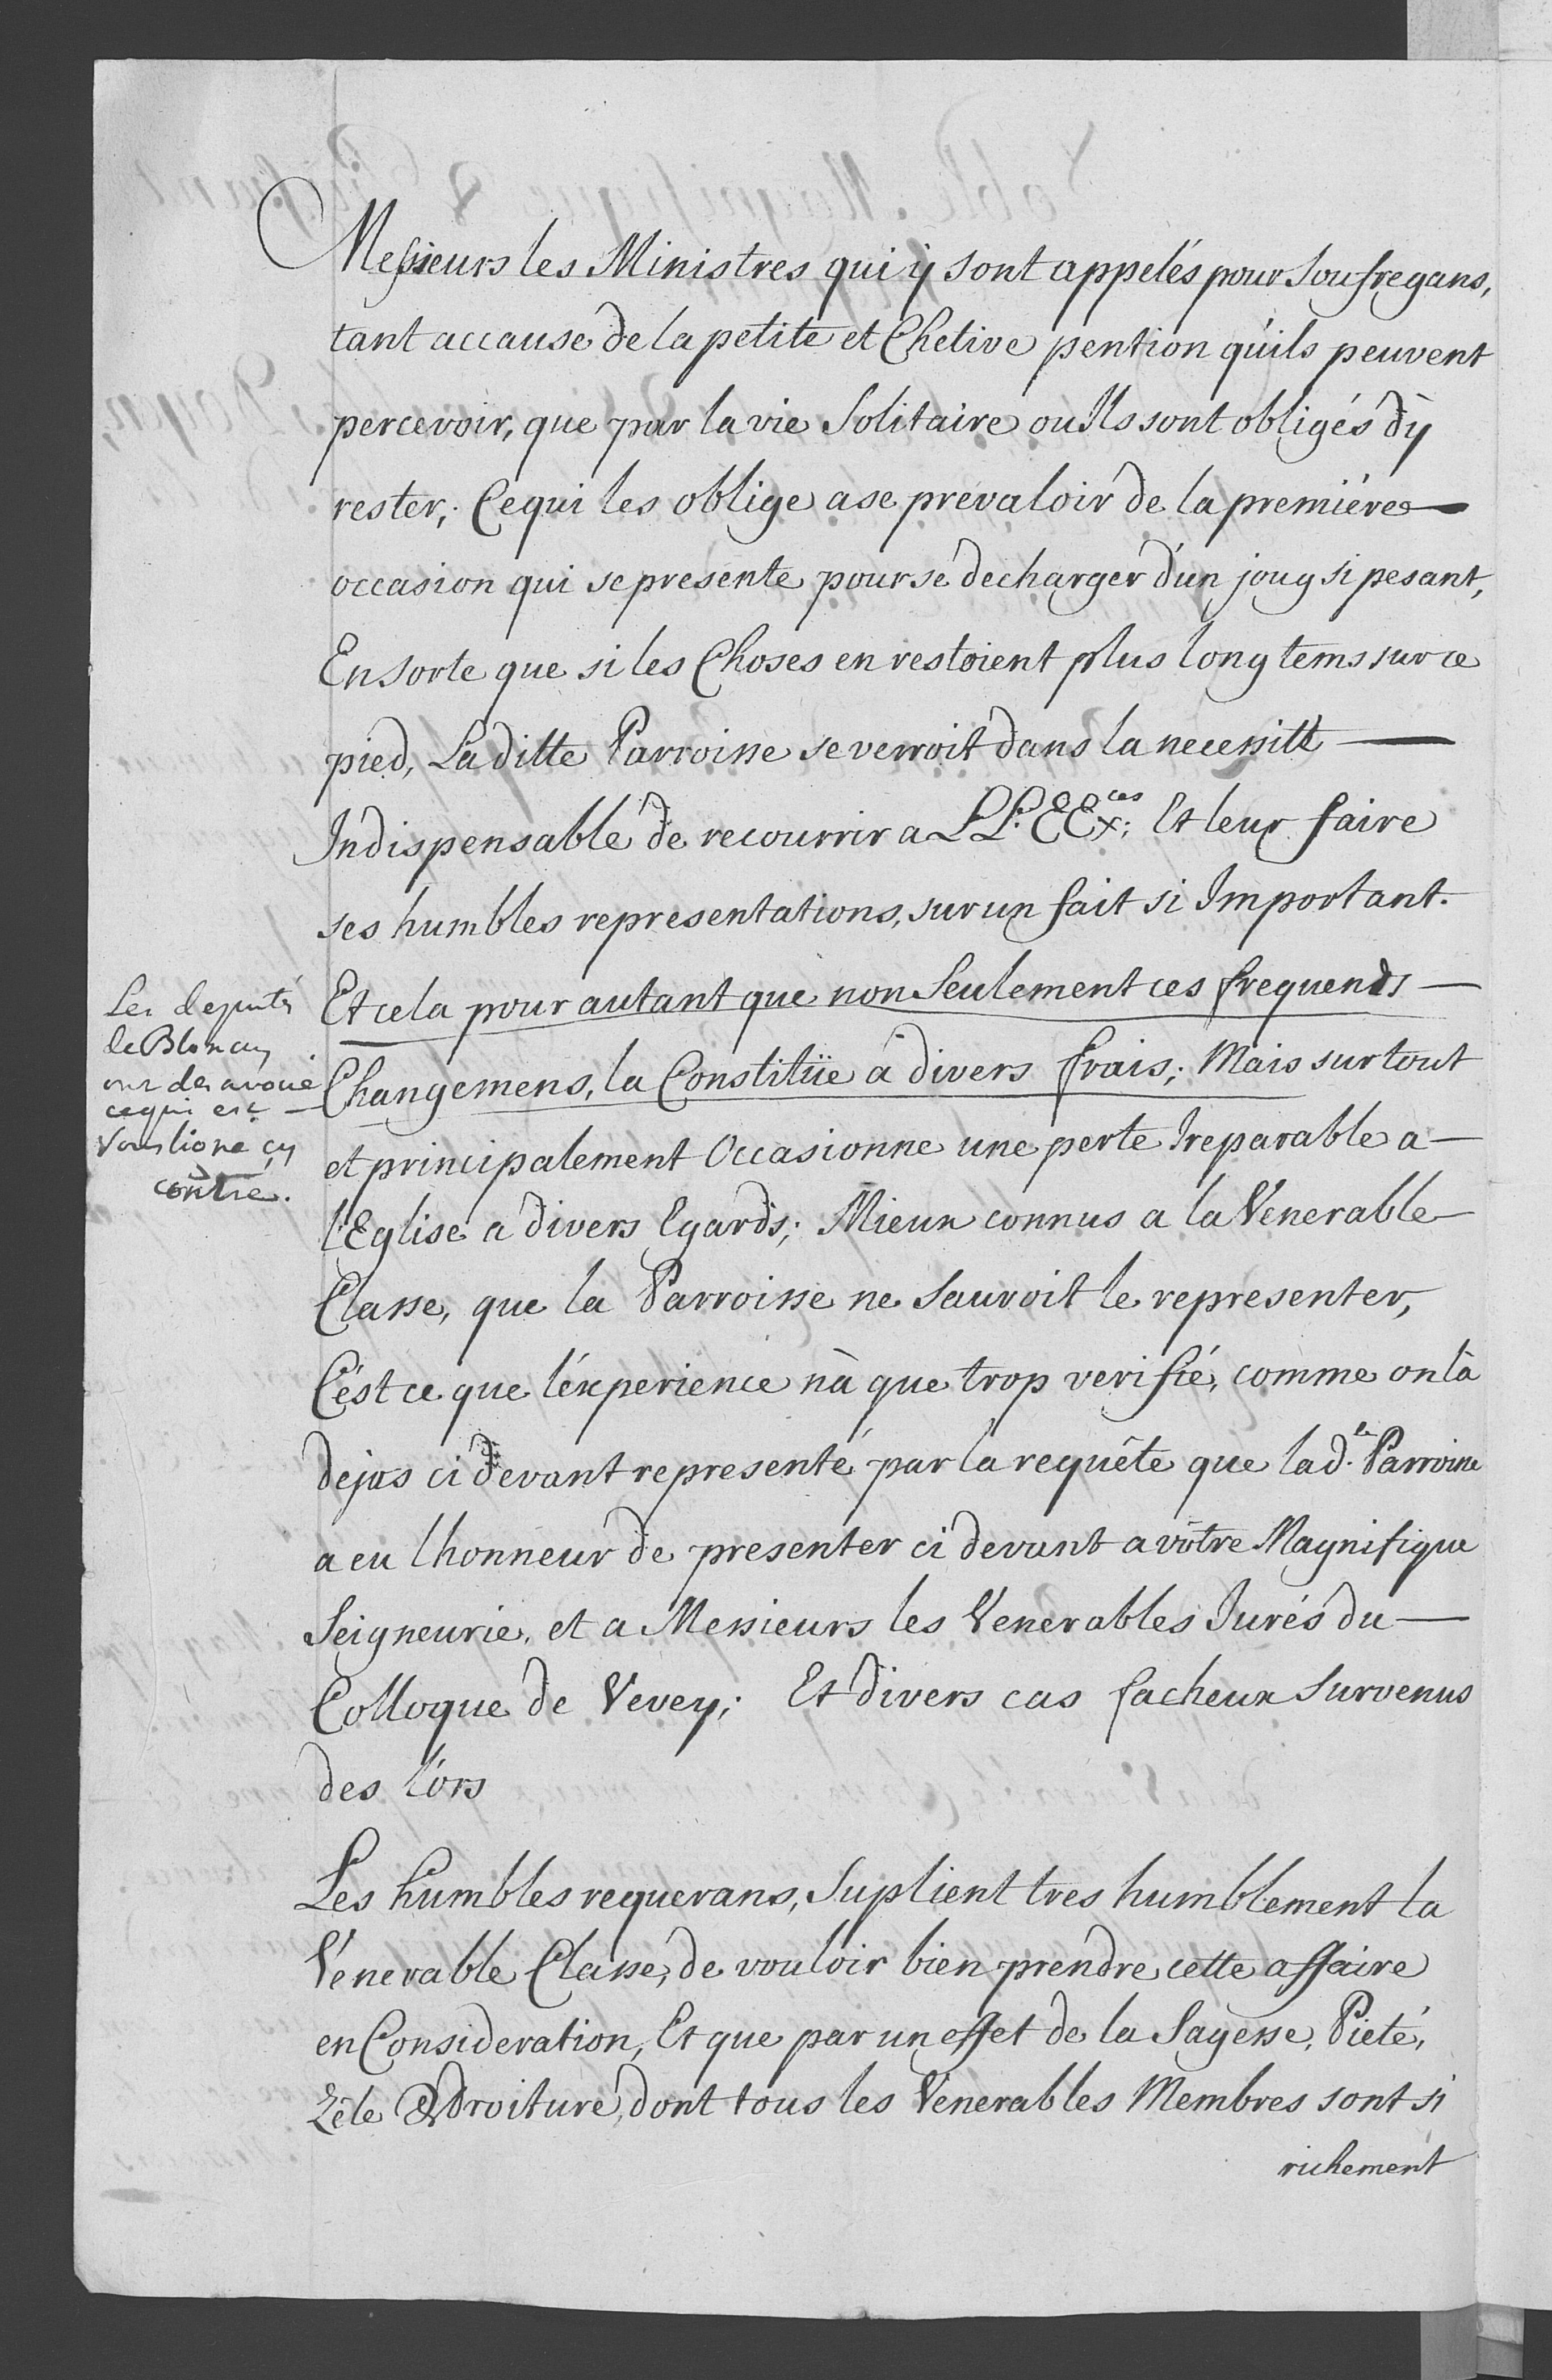 Messieurs les Ministres qui ÿ sont appelés pour Soufregans,
tant accause de la petite et Chetive pention qu'ils peuvent
percevoir, que par la vie Solitaire ou Ils sont obligés d'y
rester; Ce qui les oblige a se prevaloir de la premiére —
occasion qui se presente pour se decharger d'un joug si pesant,
En sorte que si les Choses en restoient plus long tems sur ce
pied, La ditte Parroisse se verroit dans la necessité —
Indispensable de recourrir a LL. EEx.ces; Et leur faire
ses humbles representations, sur un fait si Important.
Et cela pour autant que non Seulement ces frequends —
Changemens, la Constitüe à divers frais; Mais sur tout
et principalement Occasionne une perte Ireparable a —
l'Eglise a divers Egards; Mieux connus a la Venerable —
Classe, que la Parroisse ne Sauroit le representer,
C'ést ce que l'éxperience n'à que trop verifié, comme on l'à
dejas ci devant representé par la requête que lad.te Parroisse
a eu l'honneur de presenter ci devant a vôtre Magnifique
Seigneurie, et a Messieurs les Venerables Jurés du —
Colloque de Vevey; Et divers cas facheux Survenus
des lors
Les humbles requerans, Suplient tres humblement la
Venerable Classe, de vouloir bien prendre cette affaire
en Consideration, Et que par un effet de la Sagesse, Pieté,
Zèle & Droiture, dont tous les Venerables Membres sont si
richement
Les deputés
de Blonay
ont desavoué
ce qui est —
Sousligné cy
contre.